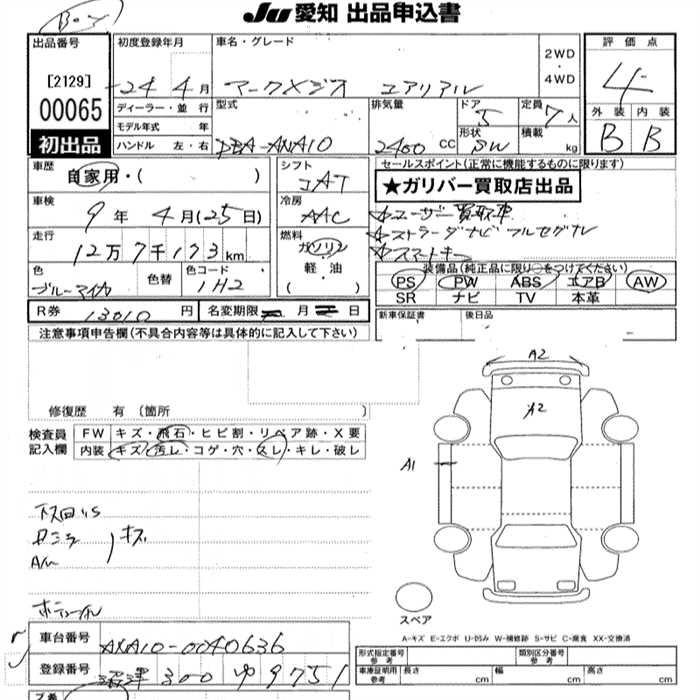 Ju 愛知 出品申込書
出品番号
[2129]
00065
初出品
初度登録年月 24 4月
車名・グレード マークXジオ エアリアル
2WD・4WD
評価点 4
外装 B 内装 B
ディーラー・並行
モデル年式 年
ハンドル 左・右
型式 DBA-ANA10
排気量 2400 CC
ドア 5
形状 SW
定員 7人
積載 kg
車歴 自家用・( )
車検 9年 4月(25日)
走行 12万7千173km
色 ブルーマイカ 色替 色コード 1H2
シフト CAT
冷房 AAC
燃料 ガソリン・軽・油 ( )
セールスポイント(正常に機能するものに限ります)
★ガリバー買取店出品
☆ユーザー買取車
☆ストラーダナビフルセグTV
☆スマートキー
装備品(純正品に限り○をつけてください)
PS PW ABS エアB AW
SR ナビ TV 本革
R券 13010円 名変期限 月 日
新車保証書 後日品
注意事項申告欄(不具合内容等は具体的に記入して下さい)
修復歴 有(箇所 )
検査員記入欄
FW キズ・飛石・ヒビ割・リペア跡・X要
内装 キズ・汚レ・コゲ・穴・スレ・キレ・破レ
A2
A2
A1
キズ
スペア
A=キズ E=エクボ U=凹み W=補修跡 S=サビ C=腐食 XX=交換済
車台番号 ANA10-0040636
登録番号 沼津 300 ゆ 9751
形式指定番号 参考
類別区分番号 参考
車庫証明用 参考 長さ cm 幅 cm 高さ cm